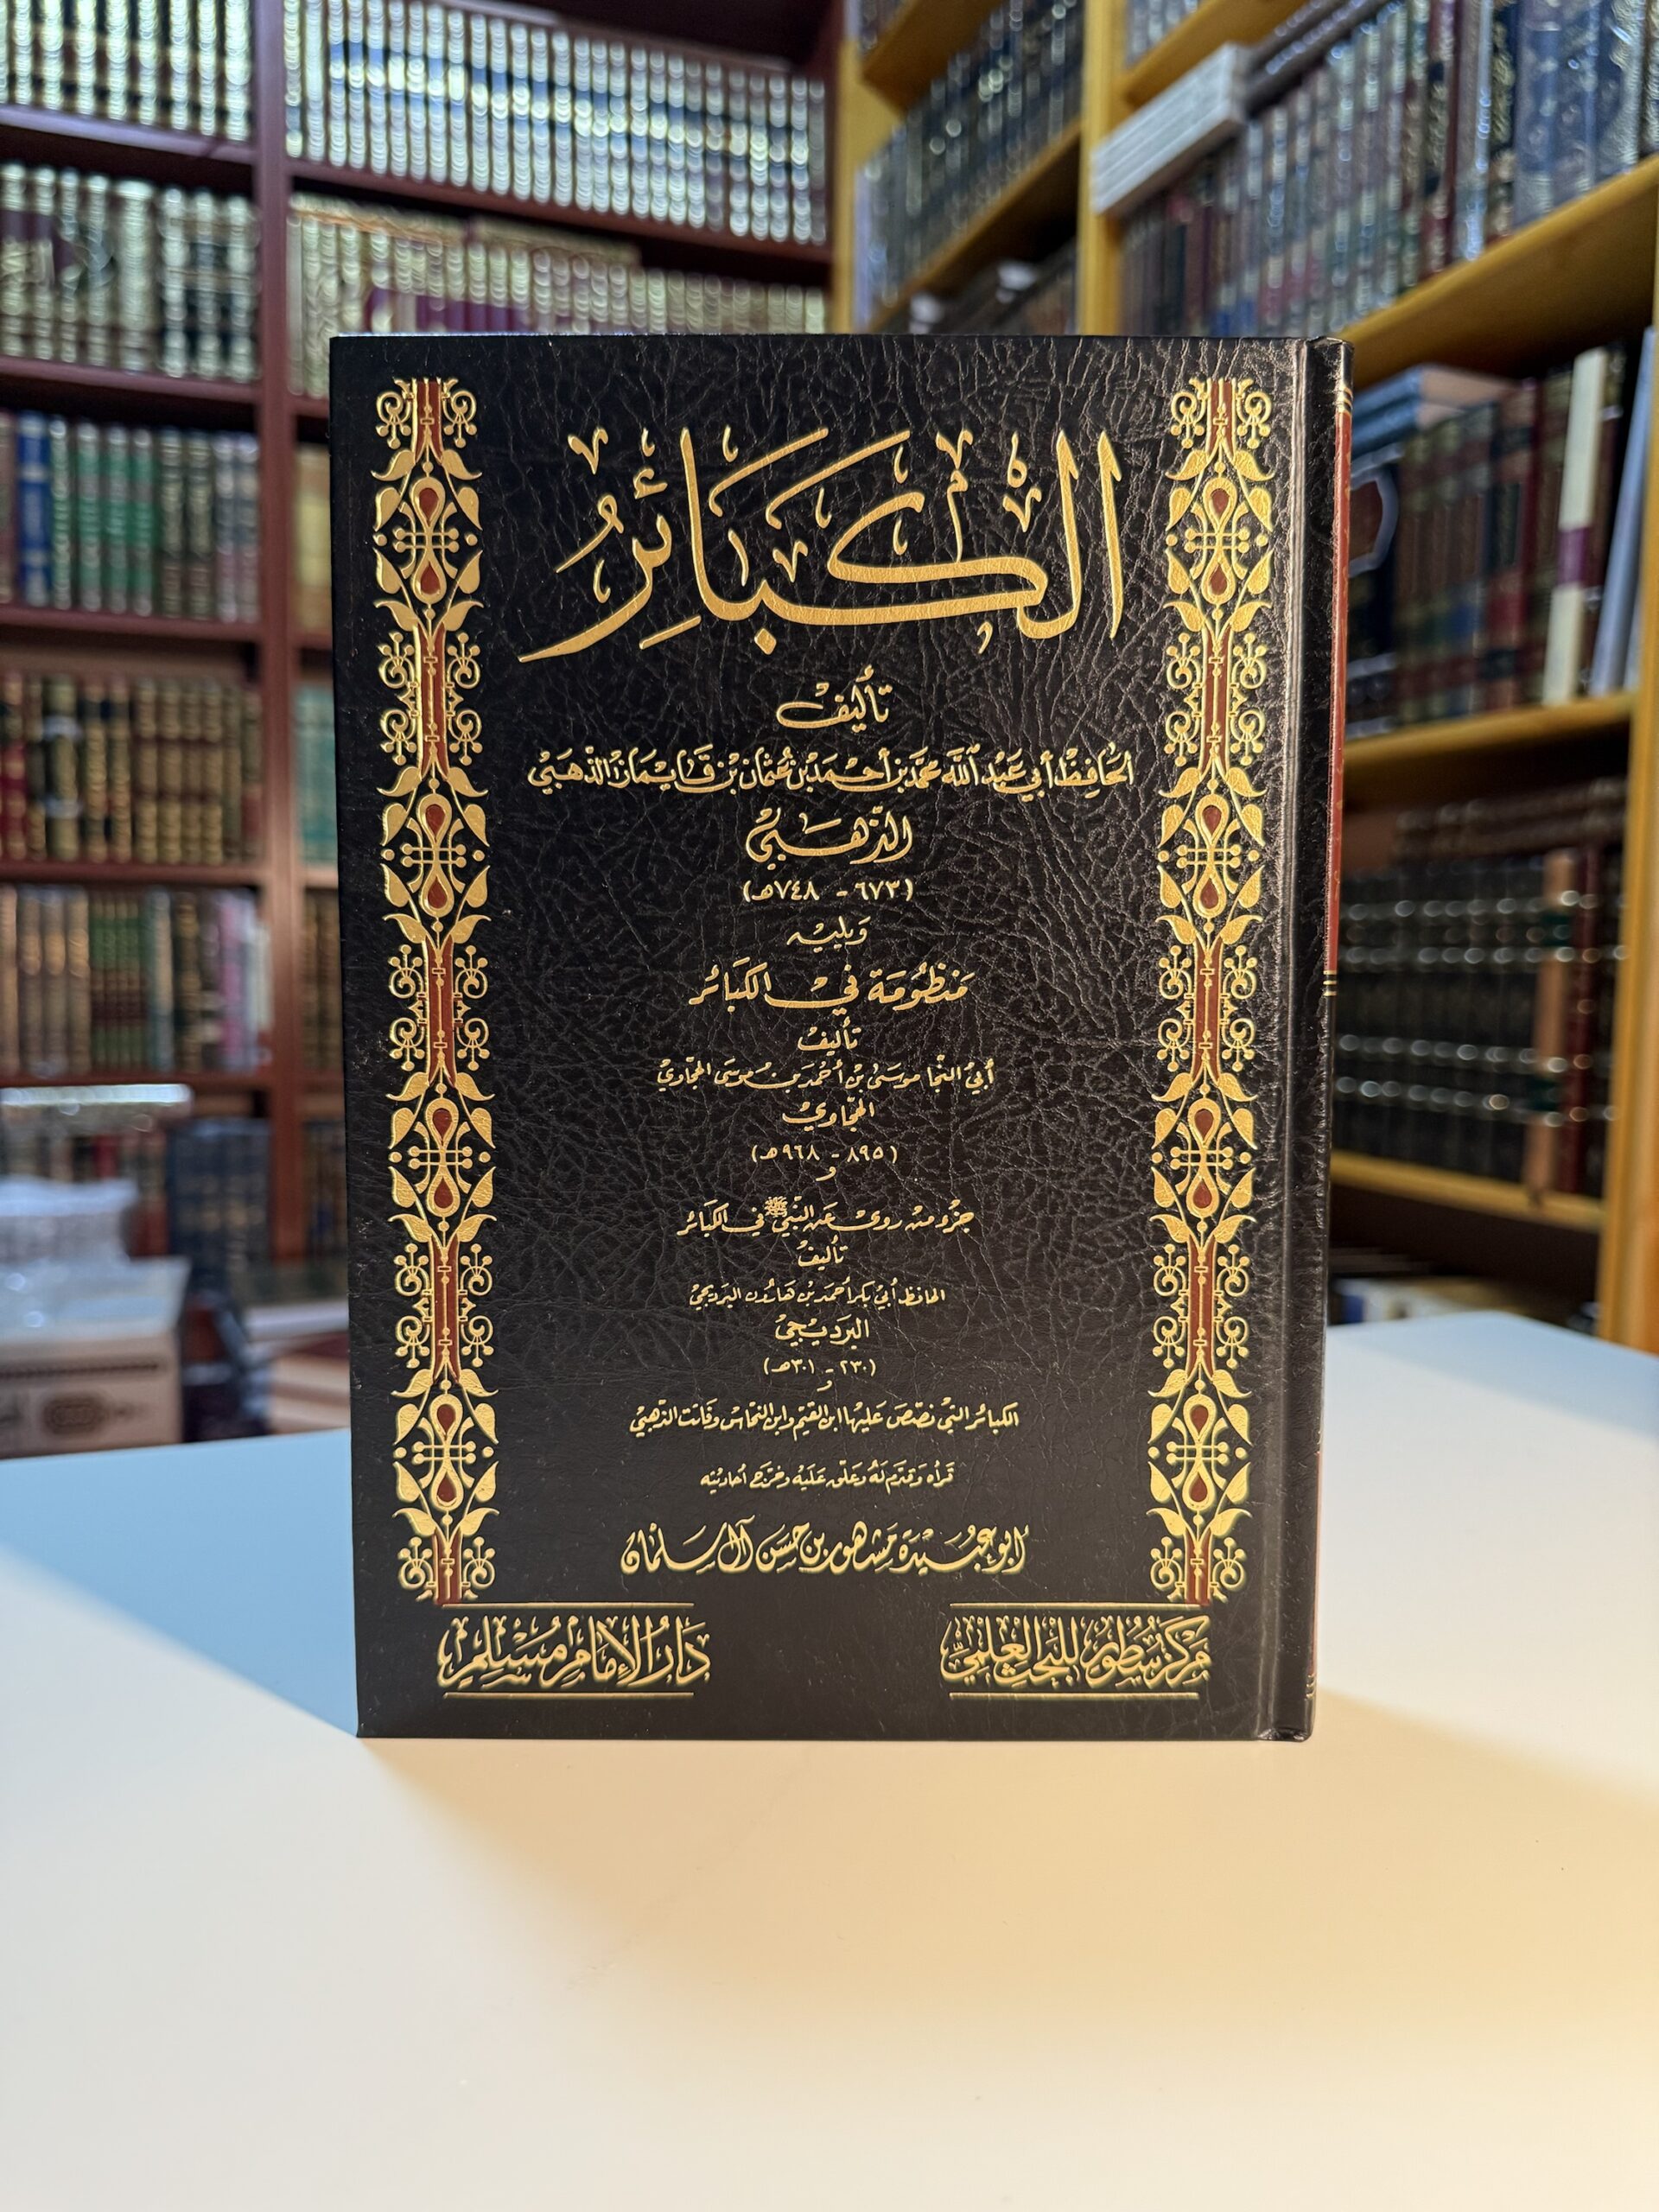 الكَبَائِرُ
تَأليفُ
الحَافِظِ أبي عَبْدِ اللَّه محمَّد بن أحمَد بن عُثمَان بن قَايمَاز الذَّهَبيّ
الذَّهَبيّ
(٦٧٣ - ٧٤٨هـ)
وَيليه
مَنظُومَة في الكَبَائر
تَأليفُ
أبي النَّجا موسَى بن أحمَد بن موسَى الحجّاوي
الحجّاوي
(٨٩٥ - ٩٦٨هـ)
و
جزء من روى عن النبي ﷺ في الكبَائر
تَأليفُ
الحافظ أبي بكر أحمد بن هارون البرديجي
البرديجي
(٢٣٠ - ٣٠١هـ)
و
الكبائر التي نصّص عَليها ابن القيّم وابن النحّاس وفَاتت الذّهبي
قَرأه وَقدّم لَهُ وعَلّق عَليَه وخرّج أحَاديثه
أبو عُبيدَة مَشهور بن حَسَن آل سَلمان
مَركَز سُطُور للبَحث العِلميّ
دَارُ الإمَام مُسْلِم